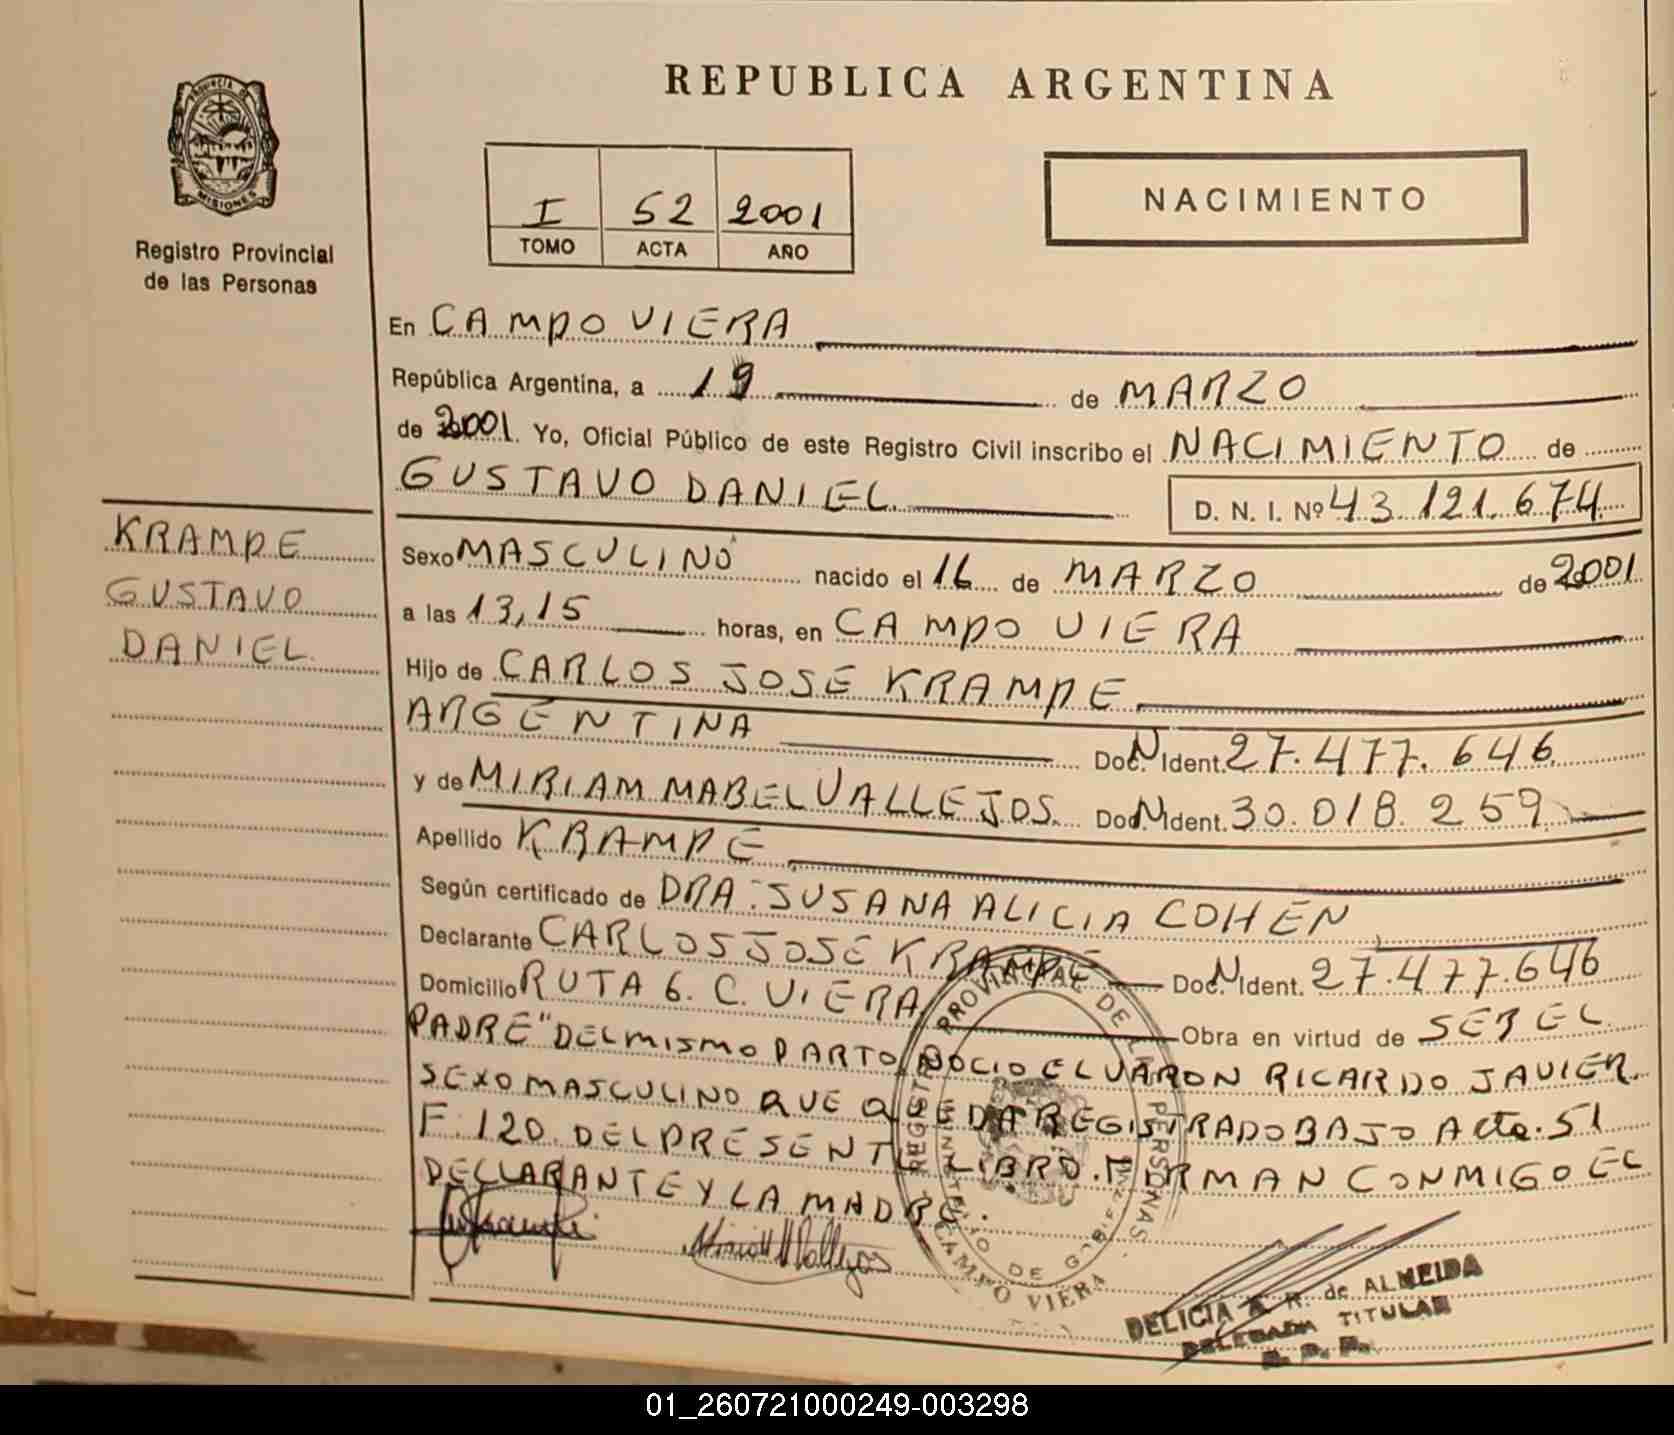 REPUBLICA ARGENTINA
PROVINCIA DE
MISIONES
Registro Provincial
de las Personas
I 52 2001
TOMO ACTA AÑO
NACIMIENTO
En CAMPO VIERA
República Argentina, a 19 de MARZO
de 2001. Yo, Oficial Público de este Registro Civil inscribo el NACIMIENTO de
GUSTAVO DANIEL D. N. I. Nº 43.121.674
KRAMPE
GUSTAVO
DANIEL
Sexo MASCULINO nacido el 16 de MARZO de 2001
a las 13,15 horas, en CAMPO VIERA
Hijo de CARLOS JOSE KRAMPE
ARGENTINA Doc. N Ident. 27.477.646
y de MIRIAM MABEL VALLEJOS Doc. N Ident. 30.018.259
Apellido KRAMPE
Según certificado de DRA. SUSANA ALICIA COHEN
Declarante CARLOS JOSE KRAMPE Doc. N Ident. 27.477.646
Domicilio RUTA 6. C. VIERA Obra en virtud de SER EL
PADRE" DEL MISMO PARTO NOCIO EL VARON RICARDO JAVIER.
SEXO MASCULINO QUE QUEDA REGISTRADO BAJO Acta. 51
F. 120. DEL PRESENTE LIBRO. FIRMAN CONMIGO EL
DECLARANTE Y LA MADRE.
REGISTRO PROVINCIAL DE LAS PERSONAS
MINISTERIO DE GOBIERNO
CAMPO VIERA
DELICIA A. R. de ALMEIDA
DELEGADA TITULAR
R. P. P.
01_260721000249-003298